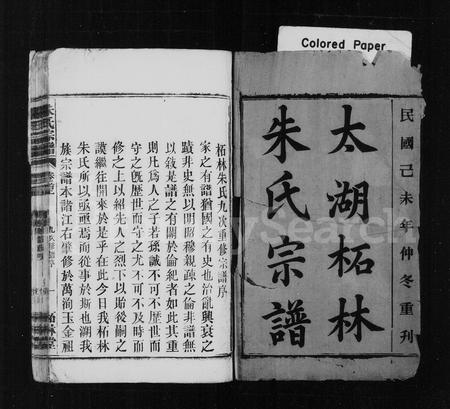 Colored Paper
民國己未年仲冬重刋
太湖柘林
朱氏宗譜
柘林朱氏九次重修宗譜序
家之有譜猶國之有史也治亂興衰之
蹟非史無以明昭穆親疎之倫非譜無
以敘是譜之有關於倫紀者如此其重
則凡爲人之子若孫誠不可不歷世而
守之旣歷世而守之尤不可不及時而
修之上以紹先人之烈下以貽後嗣之
謨繼往開來於是乎在此今日我柘林
朱氏所以亟亟焉而從事於斯也溯我
族宗譜本諸江右肇修於萬洵玉金祖
朱氏宗譜
九次
一
柏林堂